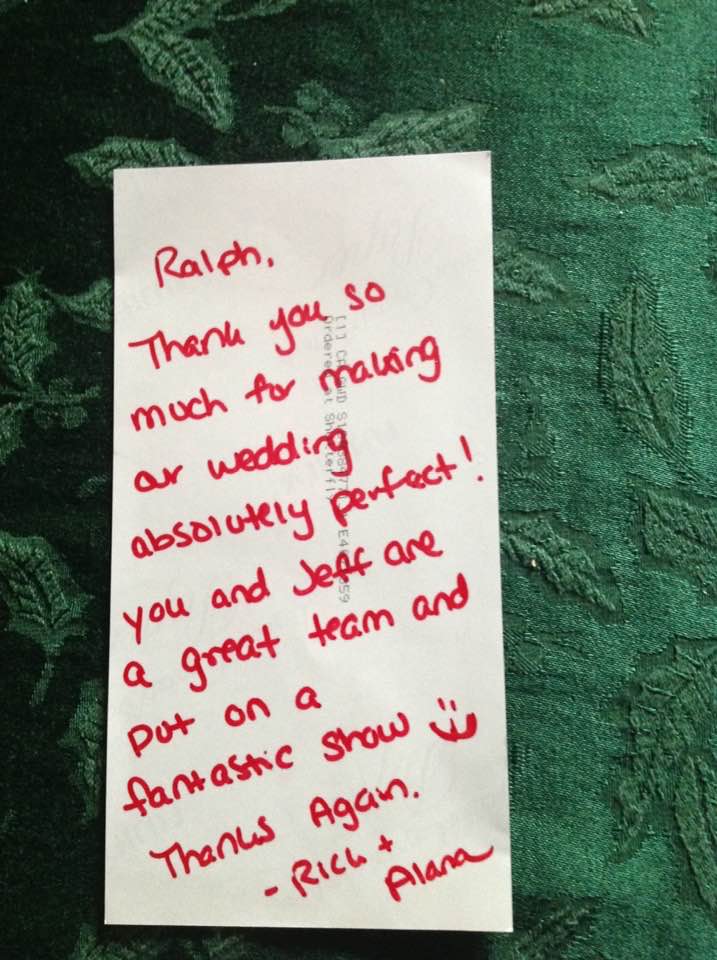 Ralph,
Thank you so
much for making
our wedding
absolutely perfect!
you and Jeff are
a great team and
put on a
fantastic show
Thanks Again.
- Rich +
Alana
Ordered at Shutterfly